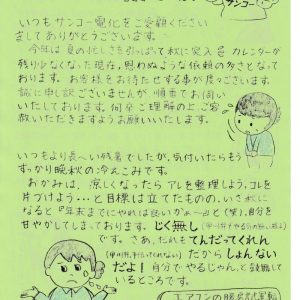 サンコー
いつもサンコー電化をご愛顧ください
ましてありがとうございます。
今年は夏の忙しさを引っぱって秋に突入し カレンダーが
残り少なくなった現在、思わぬような依頼の多さとなって
おります。お客様をお待たせする事が度々ございます。
誠に申し訳ございませんが 順番でお伺い
いたしております。何卒ご理解の上、ご容
赦いただきますようお願いいたします。
いつもより長~い残暑でしたが、気付いたらもう
すっかり晩秋の冷えこみです。
おかみは、涼しくなったら アレを整理しよう、コレを
片づけよう…と目標は立てたものの、いざ秋に
なると "年末までにやれば良いかぁ~"と(笑)、自分を
甘やかしてしまっております。じく無し
です。さあ、だれも てんだってくれん
だから しょんない
だよ! 自分でやるじゃん。と鼓舞して
いるところです。
エアコンの暖房試運転